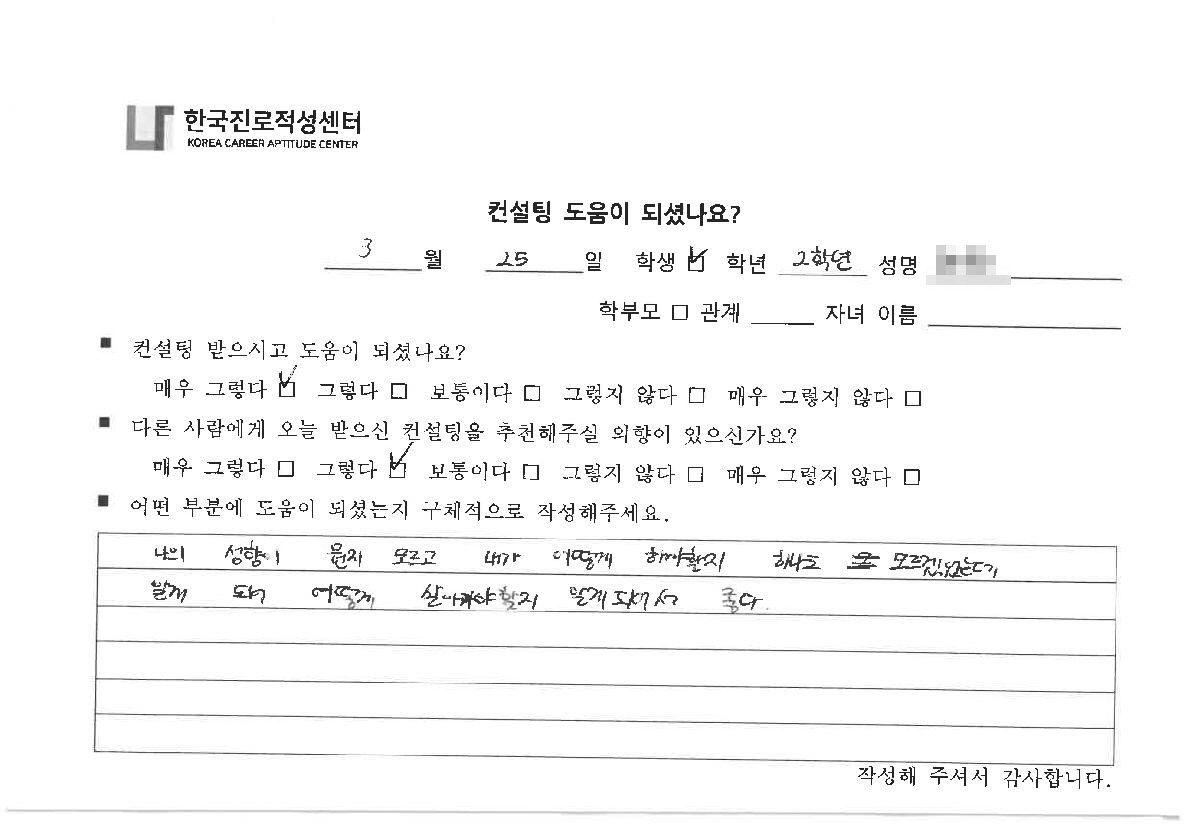 한국진로적성센터
KOREA CAREER APTITUDE CENTER
컨설팅 도움이 되셨나요?
3 월 25 일 학생 ☑ 학년 2학년 성명
학부모 □ 관계 자녀 이름
■ 컨설팅 받으시고 도움이 되셨나요?
매우 그렇다 ☑ 그렇다 □ 보통이다 □ 그렇지 않다 □ 매우 그렇지 않다 □
■ 다른 사람에게 오늘 받으신 컨설팅을 추천해주실 의향이 있으신가요?
매우 그렇다 □ 그렇다 ☑ 보통이다 □ 그렇지 않다 □ 매우 그렇지 않다 □
■ 어떤 부분에 도움이 되셨는지 구체적으로 작성해주세요.
나의 성향이 뭔지 모르고 내가 어떻게 해야할지 하나도 모르겠었는데
알게 되어 어떻게 살아가야 할지 알게 되어서 좋다.
작성해 주셔서 감사합니다.